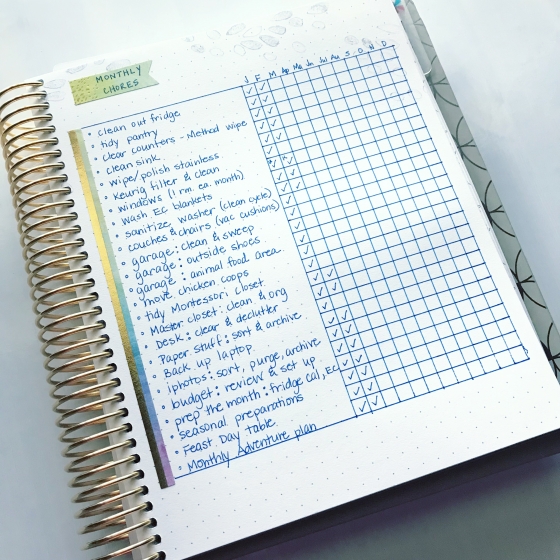 MONTHLY
CHORES
J F M Ap Ma Jn Jul Au S O N D
clean out fridge
tidy pantry
clear counters - Method wipe
clean sink
wipe/polish stainless
Keurig filter & clean
windows (1 rm. ea. month)
wash EC blankets
sanitize washer (clean cycle)
couches & chairs (vac cushions)
garage: clean & sweep
garage: outside shoes
garage: animal food area
move chicken coops
tidy Montessori closet
Master closet: clean & org
Desk: clear & declutter
Paper stuff: sort & archive
Back up laptop
iphotos: sort, purge, archive
budget: review & set up
prep the month: fridge cal, EC
seasonal preparations
Feast Day table
Monthly Adventure plan